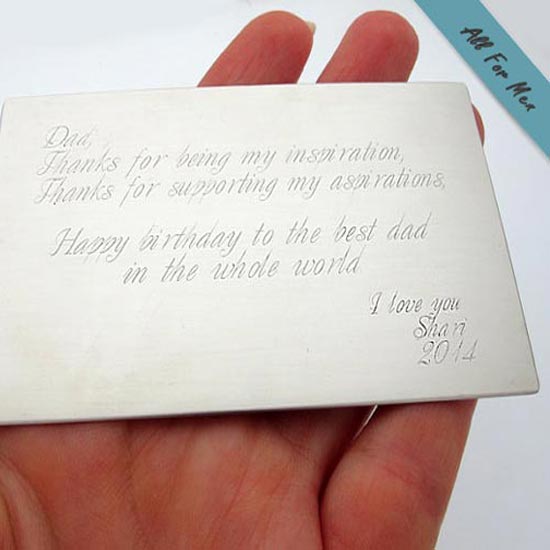 All For Men
Dad,
Thanks for being my inspiration,
Thanks for supporting my aspirations,
Happy birthday to the best dad
in the whole world
I love you
Shari
2014